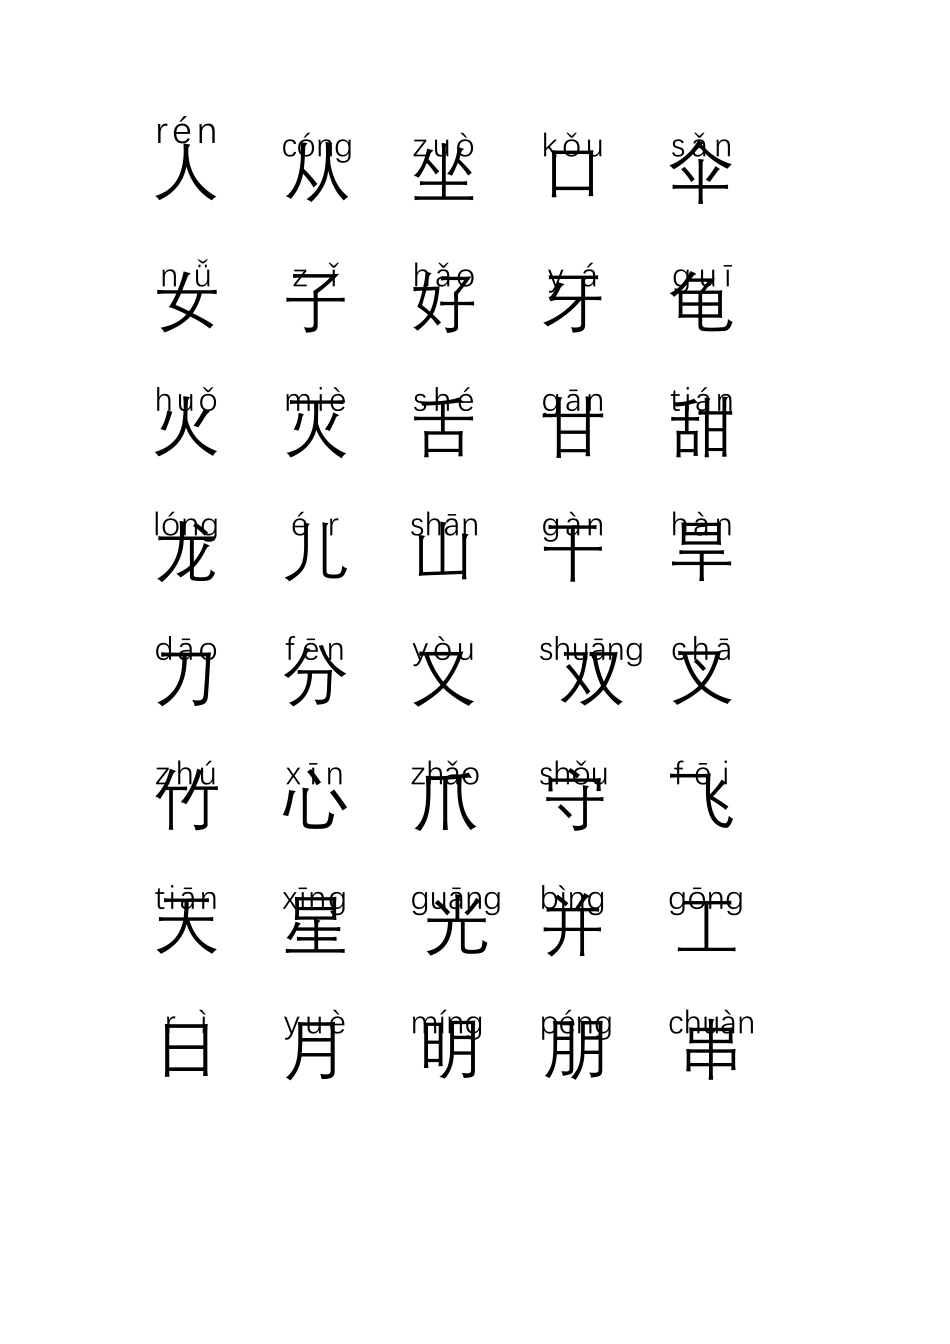 rén cóng zuò kǒu sǎn
人 从 坐 口 伞
nǚ zǐ hǎo yá guī
女 子 好 牙 龟
huǒ miè shé gān tián
火 灭 舌 甘 甜
lóng ér shān gàn hàn
龙 儿 山 干 旱
dāo fēn yòu shuāng chā
刀 分 又 双 叉
zhú xīn zhǎo shǒu fēi
竹 心 爪 守 飞
tiān xīng guāng bìng gōng
天 星 光 并 工
rì yuè míng péng chuàn
日 月 明 朋 串